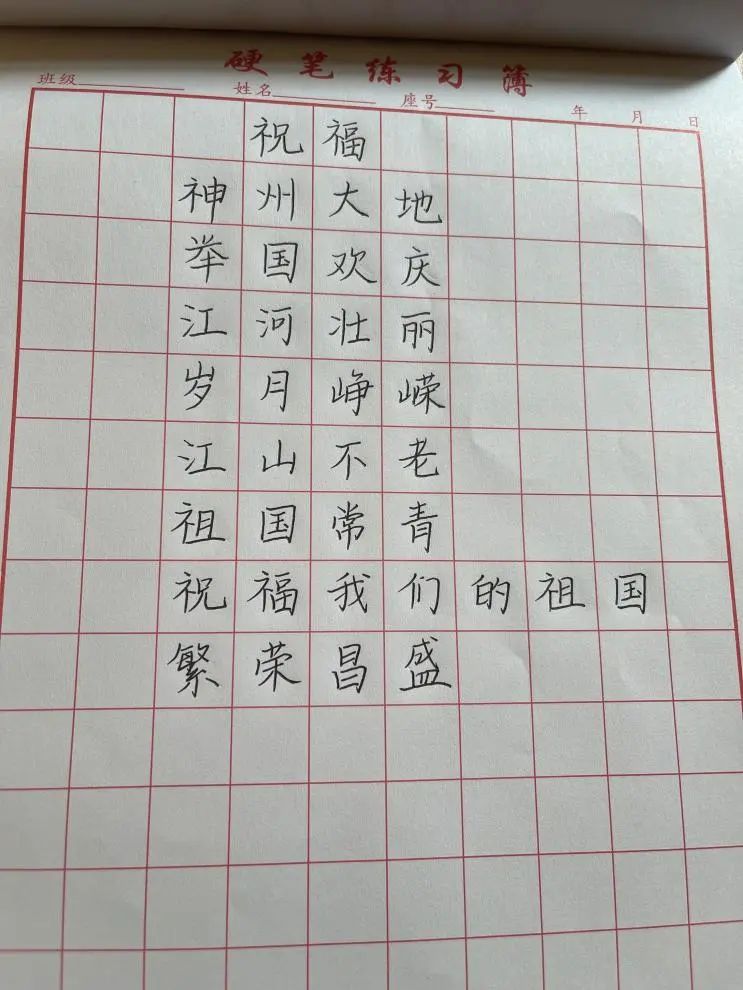 硬笔练习簿
班级 姓名 座号 年 月 日
祝福
神州大地
举国欢庆
江河壮丽
岁月峥嵘
江山不老
祖国常青
祝福我们的祖国
繁荣昌盛